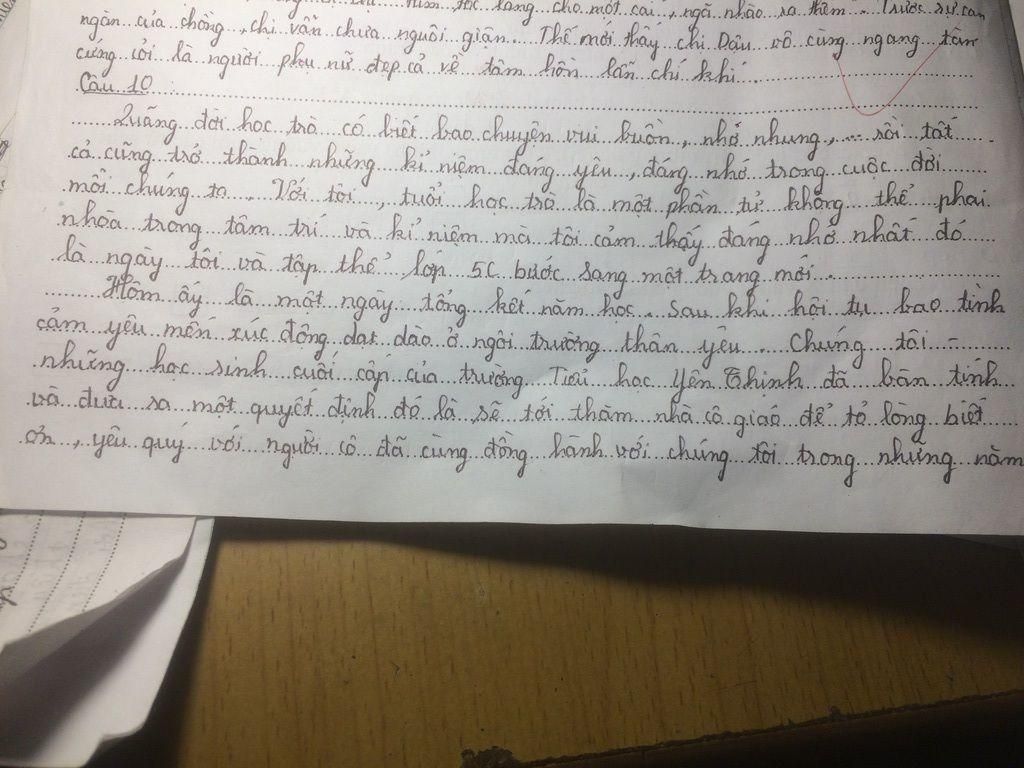 túm tóc lẳng cho một cái, ngã nhào ra thềm. Trước sự can
ngăn của chồng, chị vẫn chưa nguôi giận. Thế mới thấy chị Dậu vô cùng ngang tàn
cứng cỏi là người phụ nữ đẹp cả về tâm hồn lẫn chí khí.
Câu 10:
Quãng đời học trò có biết bao chuyện vui buồn, nhớ nhung, ... rồi tất
cả cũng trở thành những kỉ niệm đáng yêu, đáng nhớ trong cuộc đời
mỗi chúng ta. Với tôi, tuổi học trò là một phần tử không thể phai
nhòa trong tâm trí và kỉ niệm mà tôi cảm thấy đáng nhớ nhất đó
là ngày tôi và tập thể lớp 5C bước sang một trang mới.
Hôm ấy là một ngày tổng kết năm học. Sau khi hội tụ bao tình
cảm yêu mến xúc động dạt dào ở ngôi trường thân yêu. Chúng tôi -
những học sinh cuối cấp của trường Tiểu học Yên Thịnh đã bàn tính
và đưa ra một quyết định đó là sẽ tới thăm nhà cô giáo để tỏ lòng biết
ơn, yêu quý với người cô đã cùng đồng hành với chúng tôi trong những năm